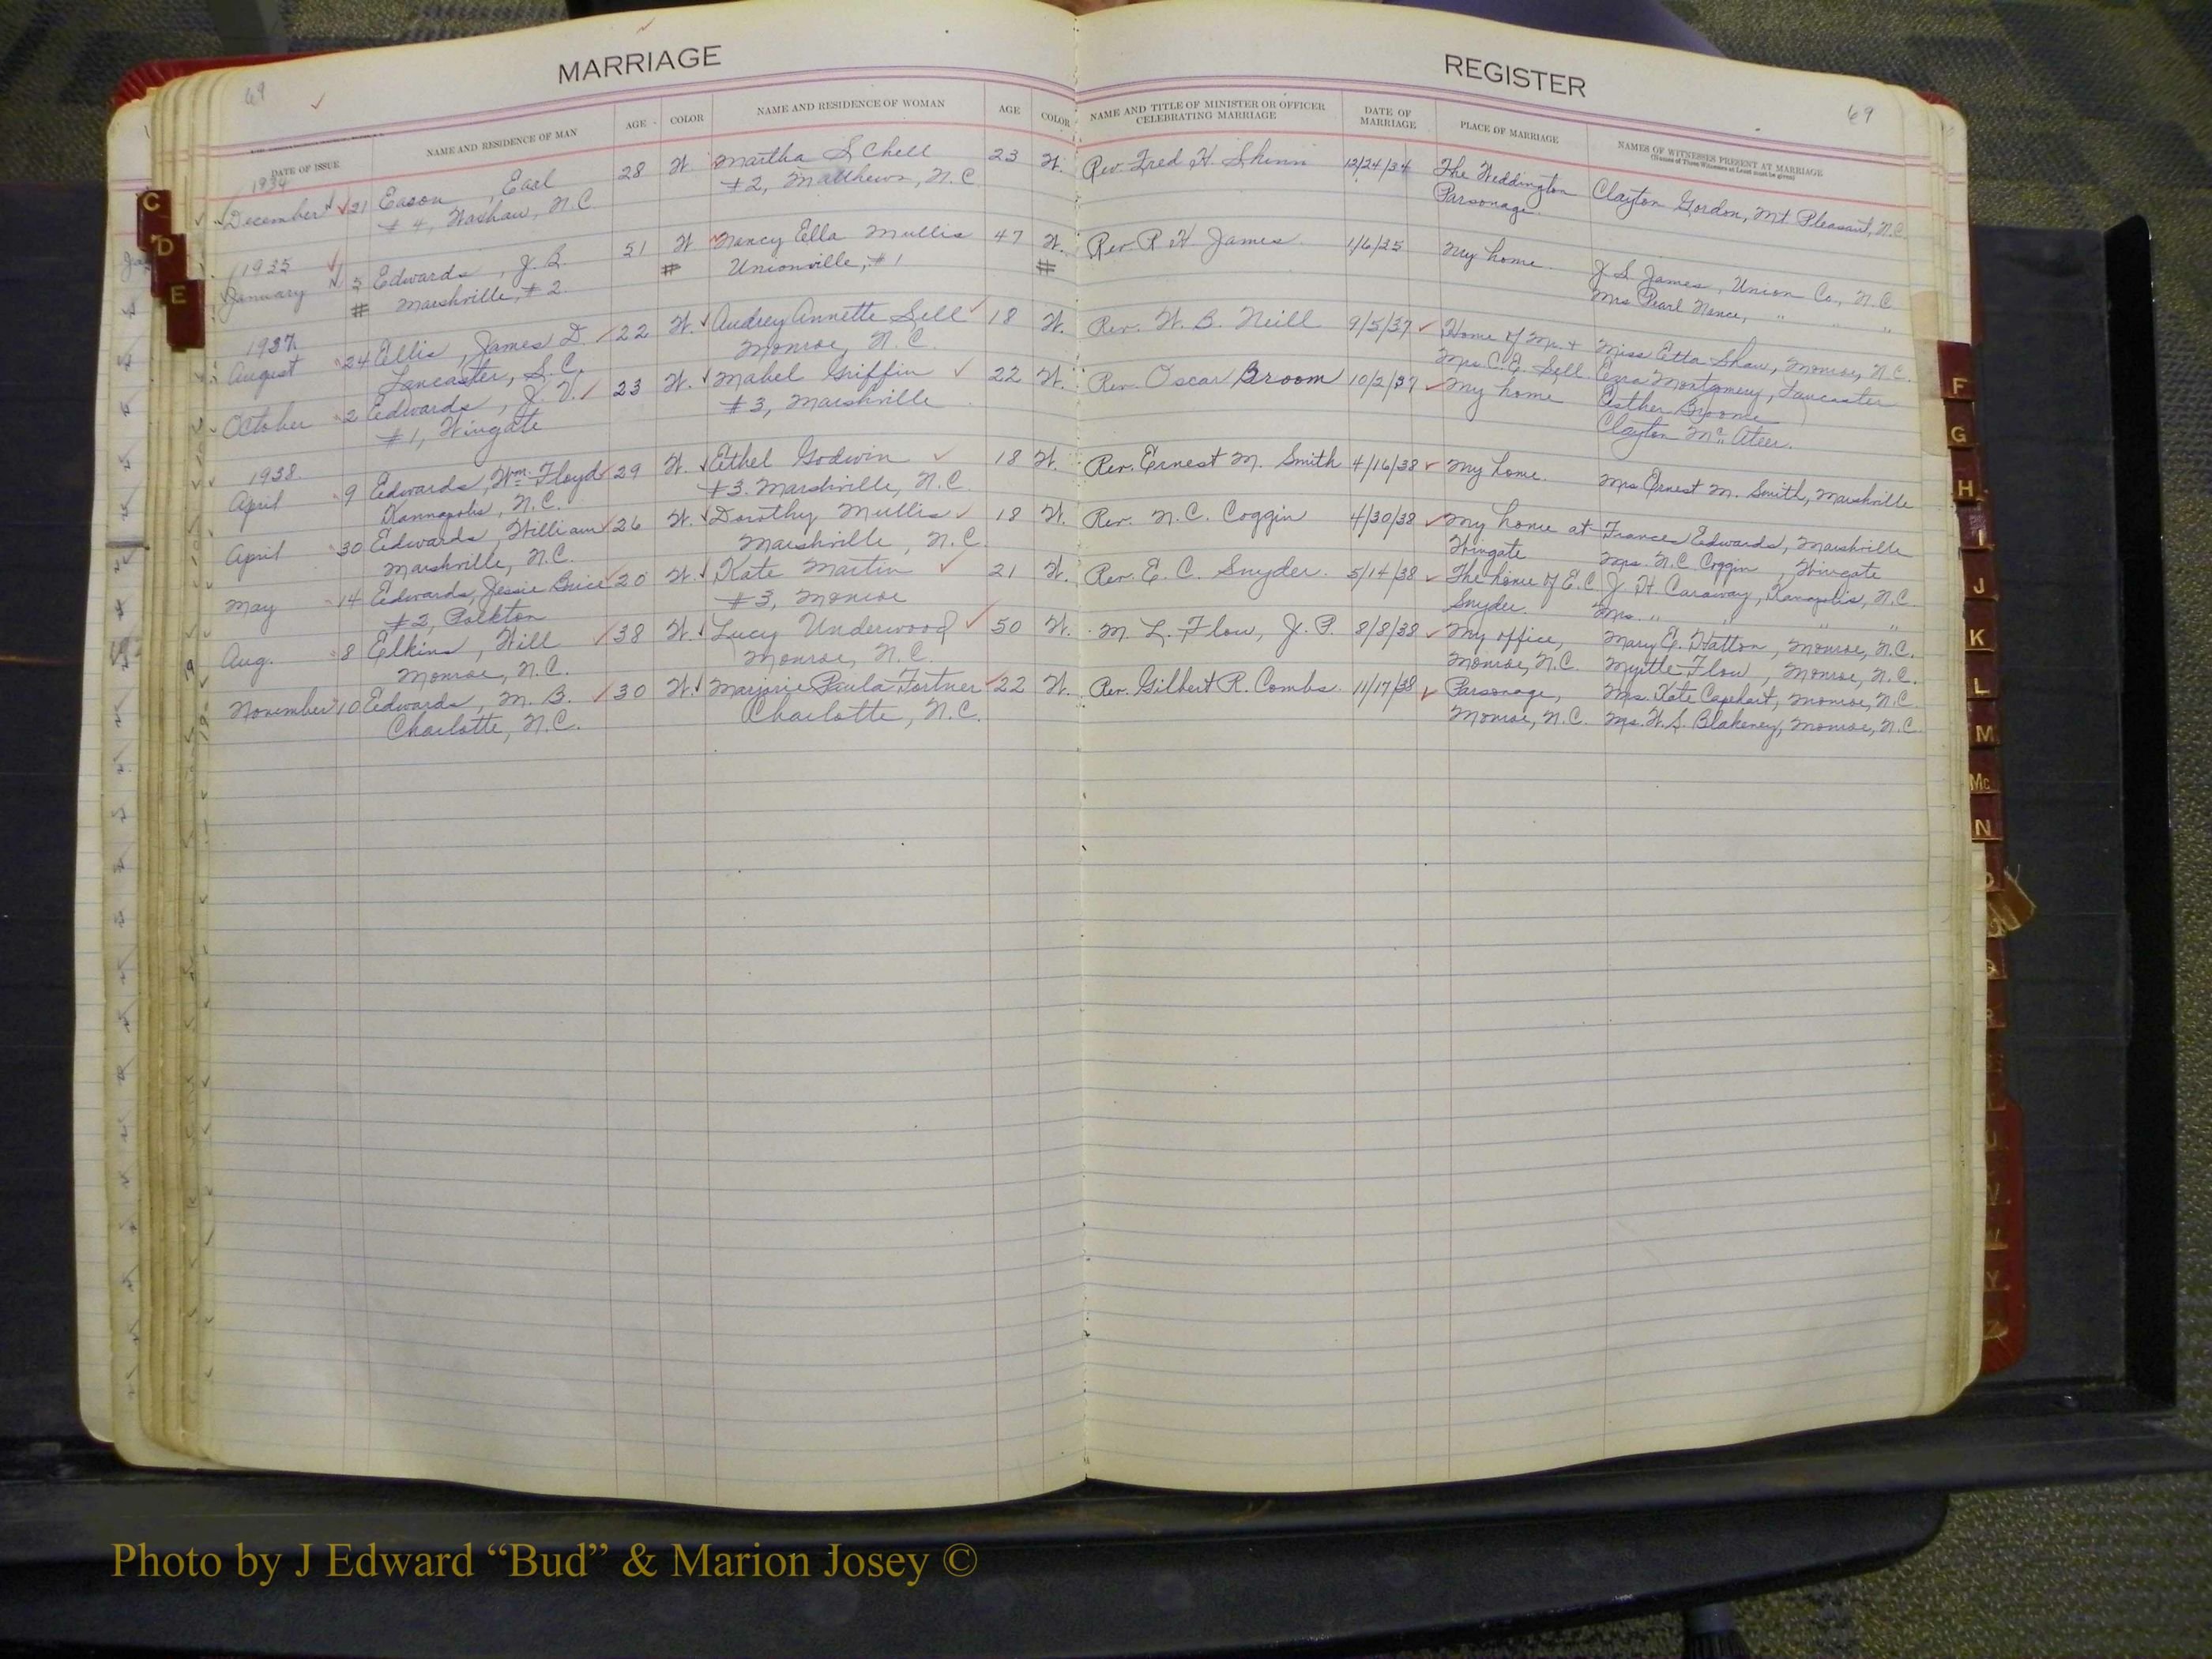 MARRIAGE
REGISTER
69
69
DATE OF ISSUE
NAME AND RESIDENCE OF MAN
AGE
COLOR
NAME AND RESIDENCE OF WOMAN
AGE
COLOR
NAME AND TITLE OF MINISTER OR OFFICER
CELEBRATING MARRIAGE
DATE OF
MARRIAGE
PLACE OF MARRIAGE
NAMES OF WITNESSES PRESENT AT MARRIAGE
(Names of Three Witnesses at Least must be given)
1934
December 21 Eason, Earl 28 W. Martha Schell 23 W. Rev. Fred H. Shinn 12/24/34 The Weddington Clayton Gordon, Mt. Pleasant, N.C.
# 4, Waxhaw, N.C. #2, Matthews, N.C. Parsonage.
1935
January 5 Edwards, J. B. 51 W Nancy Ella Mullis 47 W. Rev R H James. 1/6/35 My home. J S. James, Union Co., N.C.
# Marshville, #2. # Unionville, #1 # Mrs Pearl Nance, " " "
1937.
August 24 Ellis, James D. 22 W. Audrey Annette Sell 18 W. Rev. W. B. Neill 9/5/37 Home of Mr. + Miss Etta Shaw, Monroe, N.C.
Lancaster, S.C. Monroe, N.C. Mrs C. E. Sell. Ezra Montgomery, Lancaster
October 2 Edwards, J. V. 23 W. Mabel Griffin 22 W. Rev. Oscar Broom 10/2/37 My home Esther Broome
#1, Wingate #3, Marshville Clayton Mc Ateer.
1938.
April 9 Edwards, Wm. Floyd 29 W. Ethel Godwin 18 W. Rev. Ernest M. Smith 4/16/38 My home. Mrs Ernest M. Smith, Marshville
Kannapolis, N.C. #3. Marshville, N.C.
April 30 Edwards, William 26 W. Dorothy Mullis 18 W. Rev. N.C. Coggin 4/30/38 My home at Frances Edwards, Marshville
Marshville, N.C. Marshville, N.C. Wingate Mrs. N.C. Coggin, Wingate
May 14 Edwards, Jessie Brice 20 W. Kate Martin 21 W. Rev. E. C. Snyder. 5/14/38 The home of E.C. J. H. Caraway, Kanapolis, N.C.
#2, Polkton #3, Monroe Snyder. Mrs. " " " "
Aug. 8 Elkins, Will 38 W. Lucy Underwood 50 W. M. L. Flow, J. P. 8/8/38 My office, Mary E. Hatton, Monroe, N.C.
Monroe, N.C. Monroe, N.C. Monroe, N.C. Myrtle Flow, Monroe, N.C.
November 10 Edwards, M. B. 30 W. Marjorie Paula Fortner 22 W. Rev. Gilbert R. Combs. 11/17/38 Parsonage, Mrs. Kate Capehart, Monroe, N.C.
Charlotte, N.C. Charlotte, N.C. Monroe, N.C. Mrs. W. S. Blakeney, Monroe, N.C.
C
D
E
F
G
H
I
J
K
L
M
Mc
N
Photo by J Edward “Bud” & Marion Josey ©